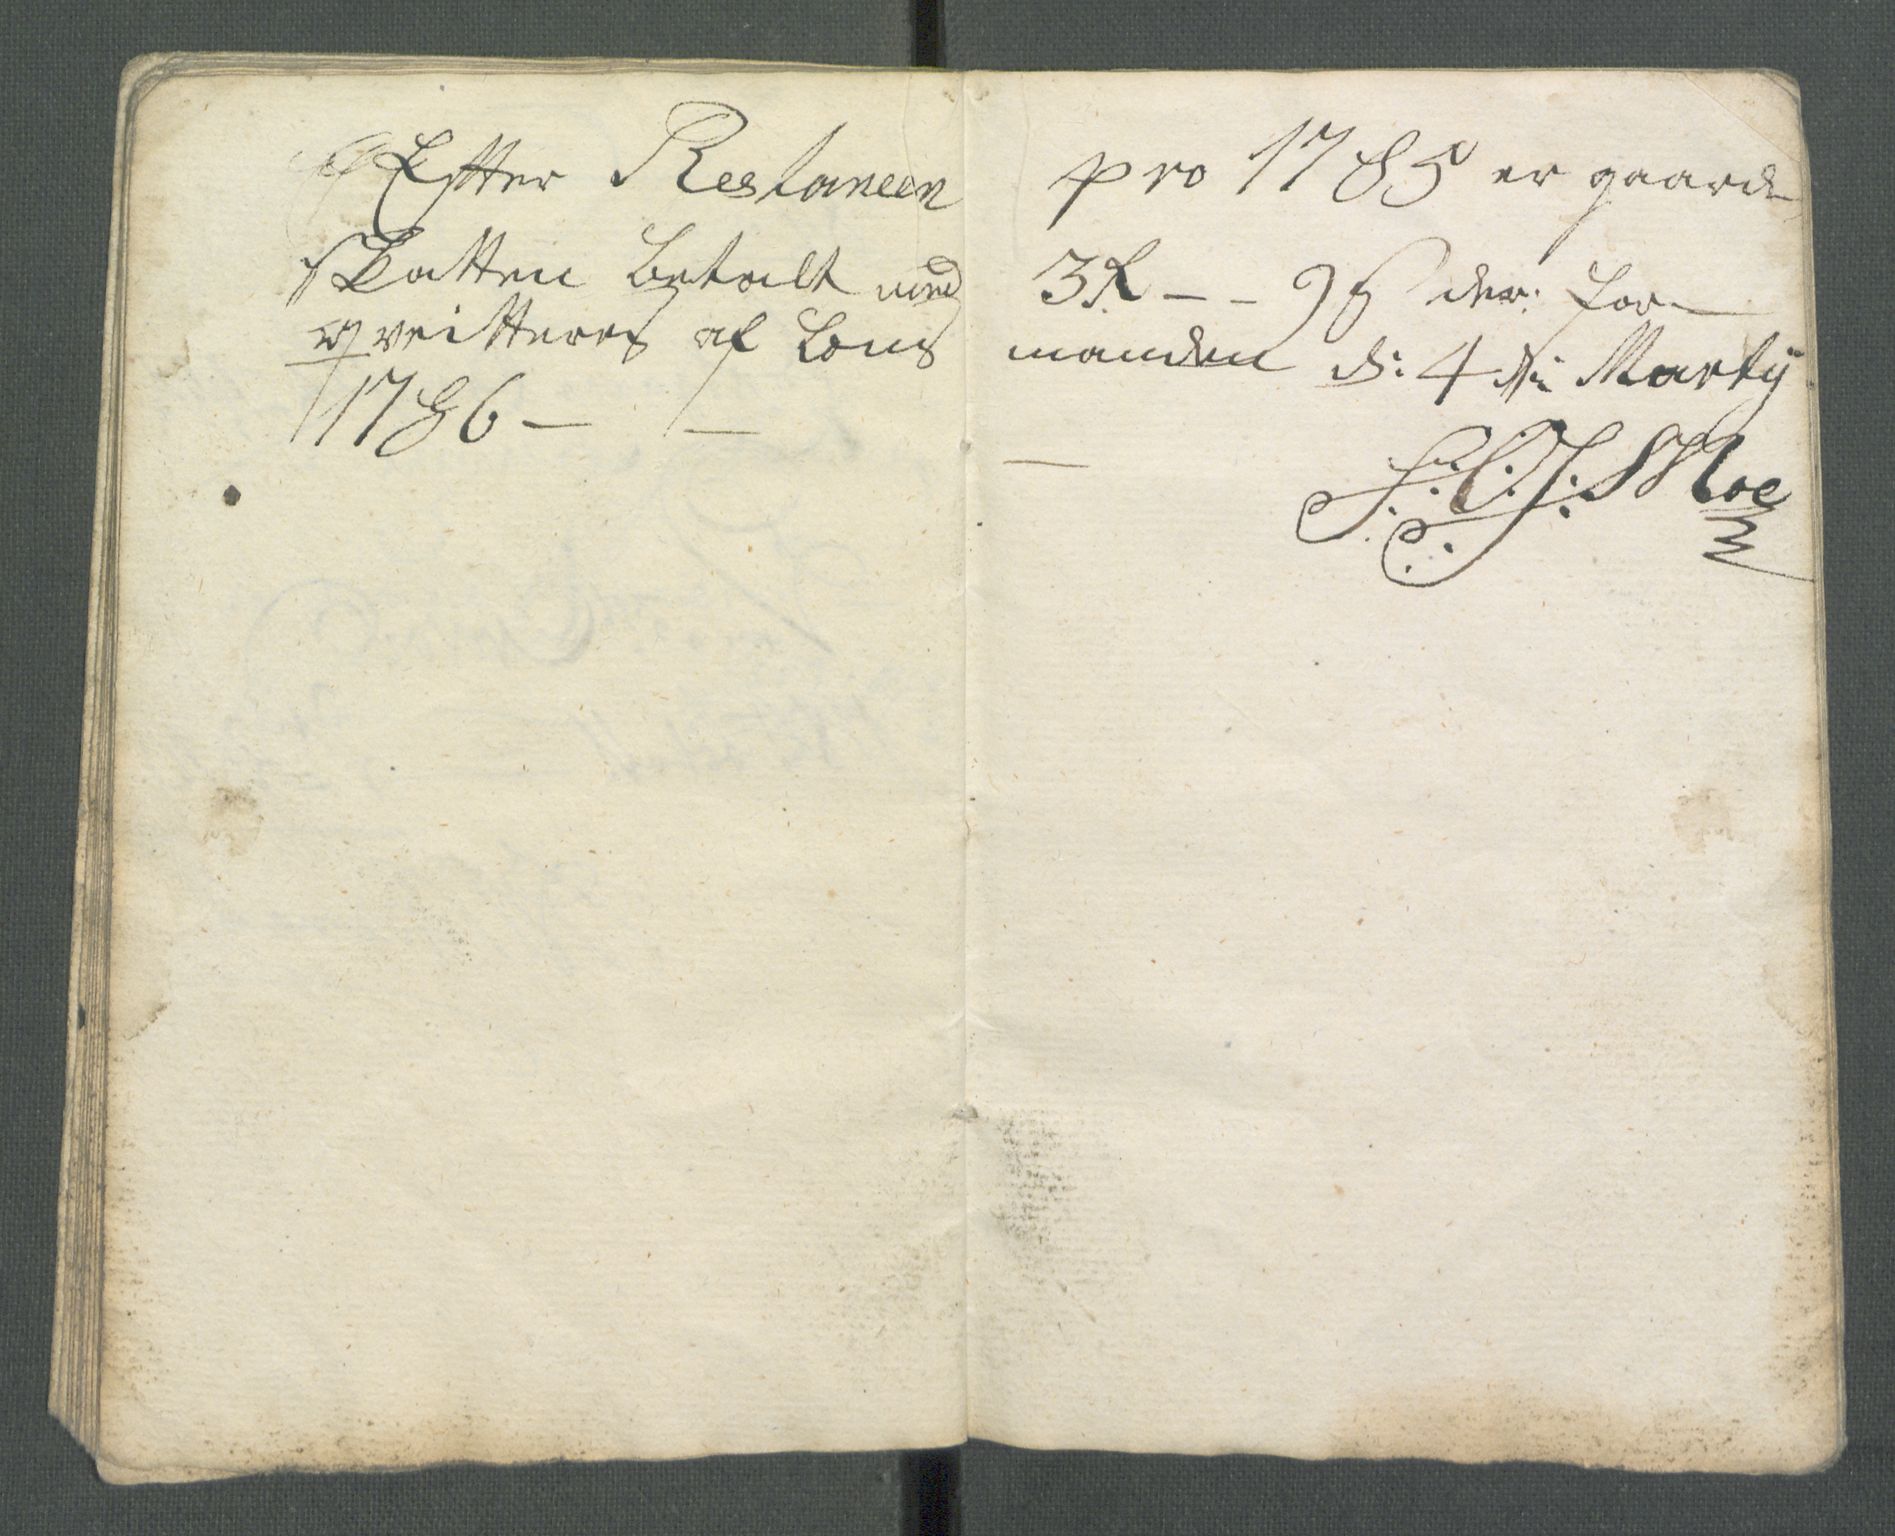 Efter Restancen pro 1785 er gaarde
skatten betalt med 3R - - 9 ß der for
qvitteres af Lens manden d: 4 de Marty
1786 — —
S:O:J: Moe